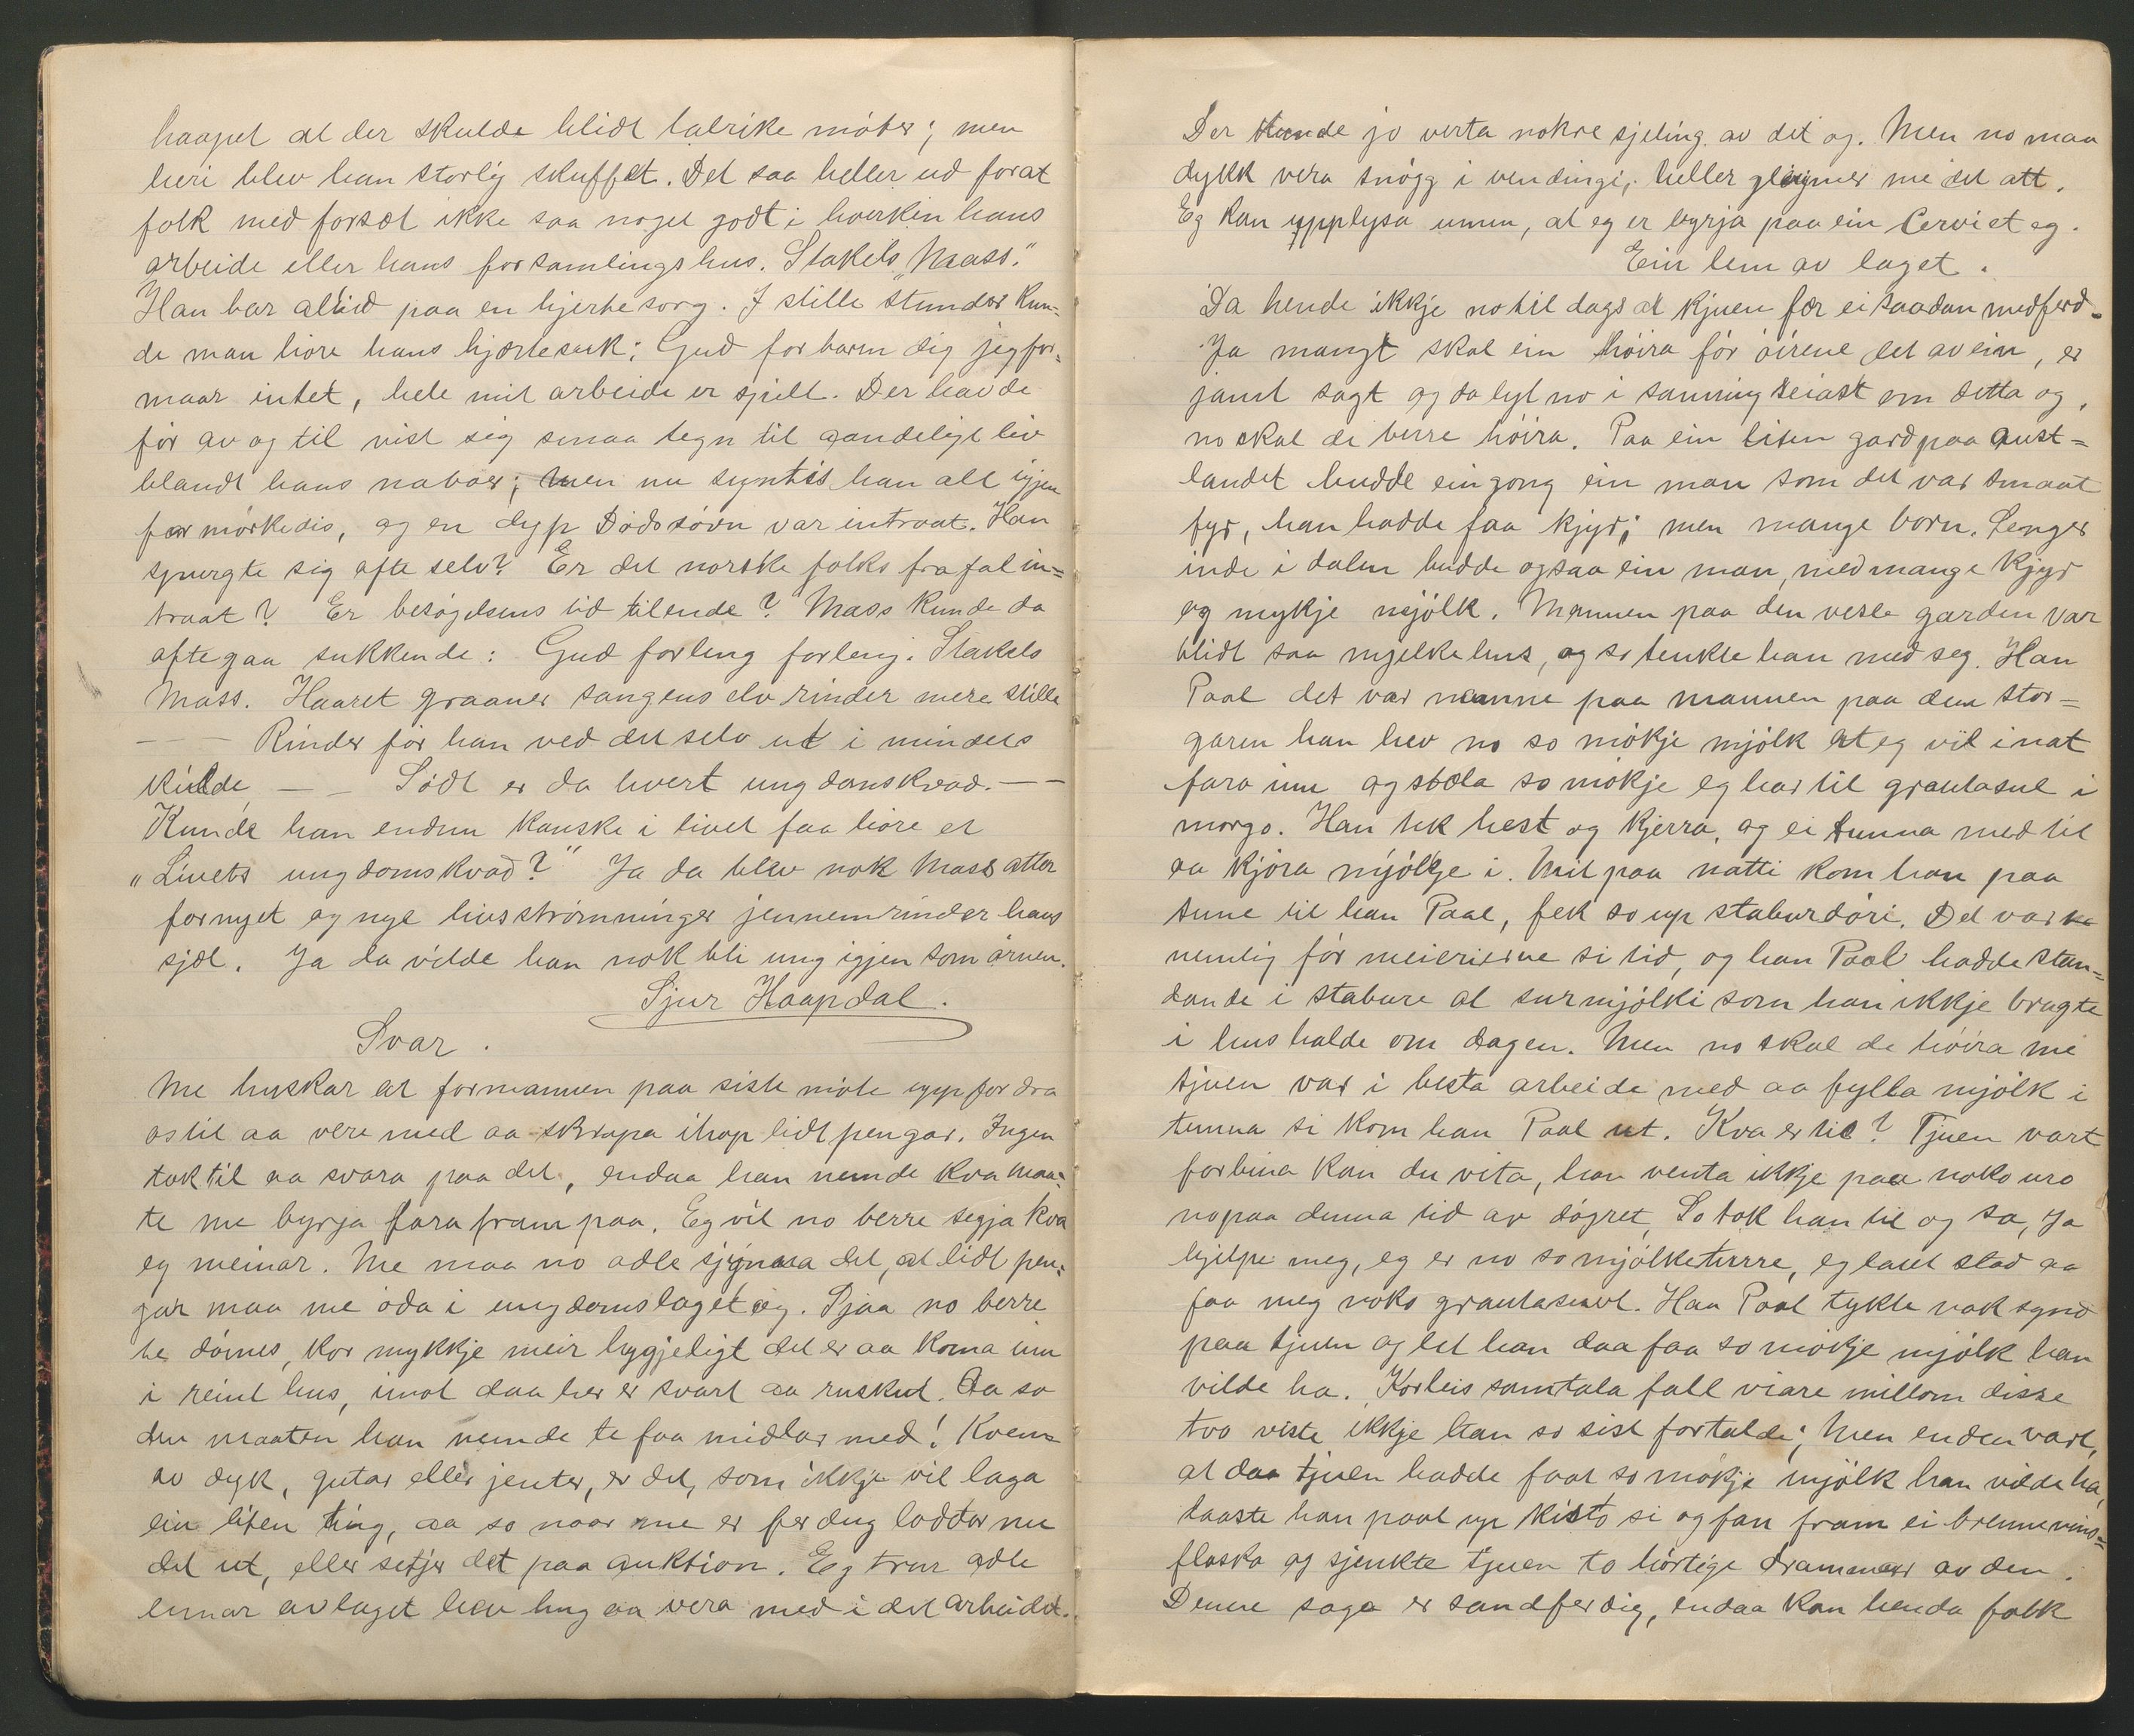 haapet at der skulde blidt talrike möter; men
heri blev han storlig skuffet. Det saa heller ud forat
folk med forsæt ikke saa noget godt i hverken hans
arbeide eller hans forsamlingshus. Stakels "Maass."
Han bar altid paa en hjertesorg. I stille stunder kun-
de man höre hans hjærtesuk: Gud forbarm dig jeg for-
maar intet, hele mit arbeide er spilt. Der havde
för av og til vist sig smaa tegn til aandeligt liv
blandt hans naboer; men nu syntes han alt igjen
formörkedis, og en dyp Dödssövn var intraat. Han
spurgte sig ofte selv? Er det norske folks frafal in-
traat? Er besögelsens tid tilende? Mass kunde da
ofte gaa sukkende: Gud forleng forleng. Stakels
Mass. Haaret graaner sangens elv rinder mere stille
— — Rinder för han ved det selv ut i mindets
kilde, — — Södt er da hvert ungdanskvad. — —
Kunde han endnu kanske i livet faa höre et
"Livets ungdomskvad?" Ja da blev nok Mass atter
fornyet og nye livsströmninger jennemrinder hans
sjæl. Ja da vilde han nok bli ung igjen som örnen.
Sjur Haapdal.
Svar.
Me huskar at formannen paa siste möte uppfordra
os til aa vere med aa skrapa ihop lidt pengar. Ingen
tok til aa svara paa det, endaa han nemde kva maa-
te me byrja fara fram paa. Eg vil no berre segja kva
eg meinar. Me maa no adle sjynna det, at lidt pen-
gar maa me öda i ungdomslaget og. Sjaa no berre
te dömes, kor mykkje meir hygjeligt det er aa koma inn
i reint hus, imot daa her er svart aa ruskut. Aa so
den maaten han nemde te faa midlar med! Kvem
av dyk, gutar eller jenter, er det, som ikkje vil laga
ein liten ting, aa so naar me er ferdug loddar me
det ut, eller setjer det paa auktion. Eg trur adle
lemar avlaget hev hug aa vera med i det arbeidet.
Der kunde jo verta nokre sjeling av det og. Men no maa
dykk vera snögg i vendingi, heller gleymer me det att.
Eg kan upplysa umm, at eg er byrja paa ein Cerviet eg.
Ein lem av laget.
Da hende ikkje no til dags at kjuen fær ei saadan medferd.
Ja mangt skal ein höira för öirene det av ein, er
jamt sagt og da lyt no i sanning seiast om detta og,
no skal de berre höira. Paa ein liten gard paa aust-
landet budde eingong ein man som det var smaat
fyr, han hadde faa kjyr; men mange born. Lenger
inde i dalen budde ogsaa ein man, med mange kjyr
og mykje mjölk. Mannen paa den vesle garden var
blidt saa mjelkelens, og so tenkte han med seg. Han
Paal det var namne paa mannen paa den stor-
garen han hev no so mökje mjölk at eg vil inat
fara inn og stæla so mökje eg har til grautasul i
morgo. Han tek hest og kjerra, og ei tunna med til
aa kjöra mjölkje i. Mit paa natti kom han paa
tune til han Paal, fek so up staburdöri. Det var
nemlig för meierierne si tid, og han Paal hadde stan-
dande i stabure al surmjölki som han ikkje brugte
i hushalde om dagen. Men no skal de höira me
tjuen var i besta arbeide med aa fylla mjölk i
tunna si kom han Paal ut. Kva er til? Tjuen vart
forbina kan du vita, han venta ikkje paa noko uro
nopaa denna tid av dögret, So tok han til og sa, Ja
hjelpe meg, eg er no so mjölketurre, eg laut stad aa
faa meg noko grautasuvl. Han Paal tykte nok synd
paa tjuen og let han daa faa so mökje mjölk han
vilde ha. Korleis samtala fall viare millom disse
tvo viste ikkje han so sist fortalde; Men enden vart,
at daa tjuen hadde faat so mökje mjölk han vilde ha,
laaste han paal up kisto si og fan fram ei brennevins-
flaska og sjenkte tjuen to hörtige drammar av den.
Denne soga er sandferdig, endaa kan henda folk